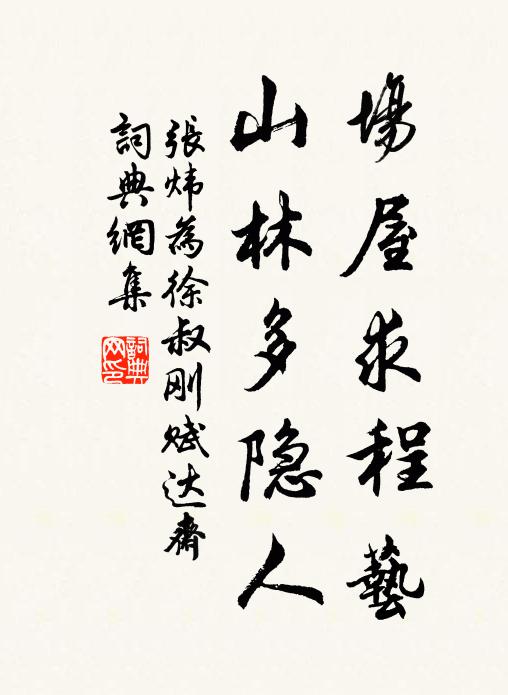 場屋求程藝
山林多隐人
張炜為徐叔刚赋达齋
詞典網集
詞典
网印